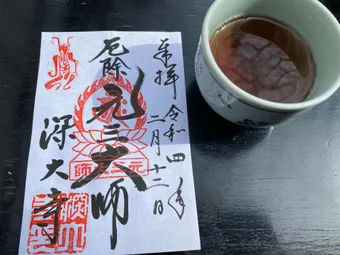 奉拝
令和四年
二月十二日
厄除
元三大師
深大寺